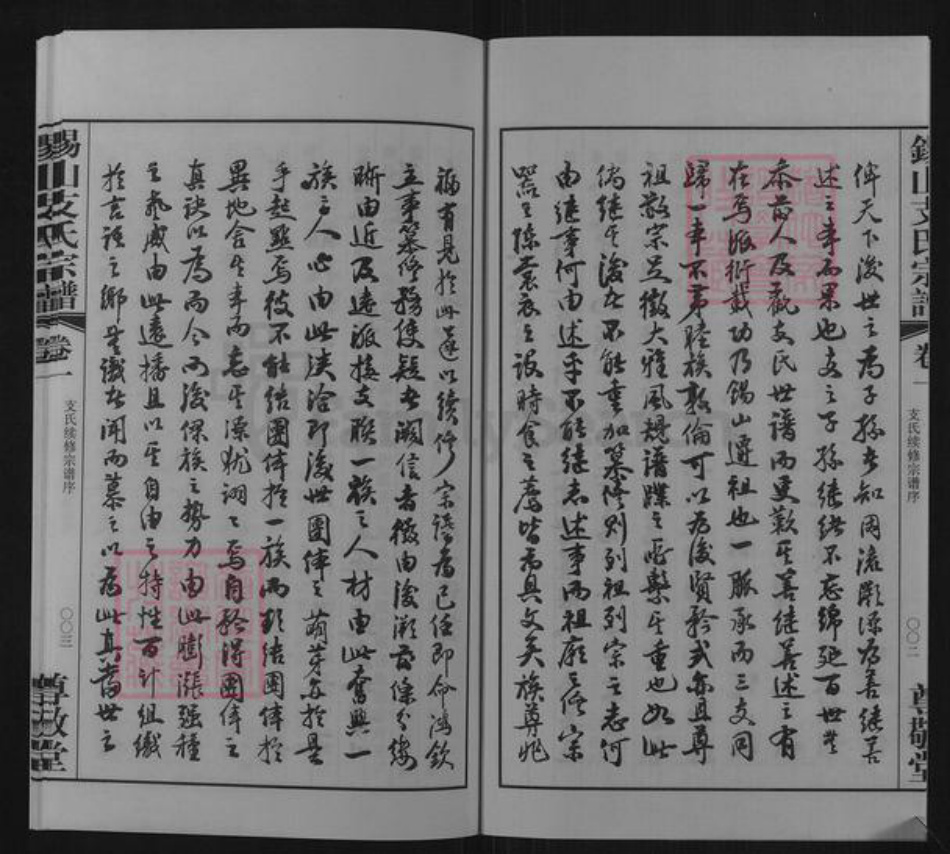 錫山支氏宗譜
卷一
支氏续修宗谱序
〇〇二
尊敬堂
俾天下後世之為子孫者知固流溯源為善繼善
述之事而果也支之子孫繼繩不忘綿延百世其
忝前人及觀支氏世譜而更歎其善繼善述之有
在焉派衍載功乃錫山遷祖也一脈承而三支同
歸一本不第睦族敦倫可以為後賢矜式亦且尊
祖敬宗足徵大雅風規譜牒之所繫其重也如此
倘繼其後者不能重加纂修則列祖列宗之志何
由繼事何由述乎不能繼志述事而祖廟之修宗
器之陳裳衣之設時食之薦皆為具文矣族尊兆
福有見於此遂以續修宗譜為己任即命鴻欽
主事纂修務使疑者闕信者徵由後溯前條分縷
晰由近及遠派接支聯一族之人材由此奮興一
族之人心由此浹洽即後世團体之萌芽亦於是
乎起點焉彼不能結團体於一族而欲結團体於
異地舍其本而忘其源猶詡詡焉自矜得團体之
真訣以為而今而後保族之勢力由此膨漲強種
之氣威由此遠播且以其自由之特性百計組織
於言語之鄉 識者聞而慕之以為此真當世之
錫山支氏宗譜
卷一
支氏续修宗谱序
〇〇三
尊敬堂